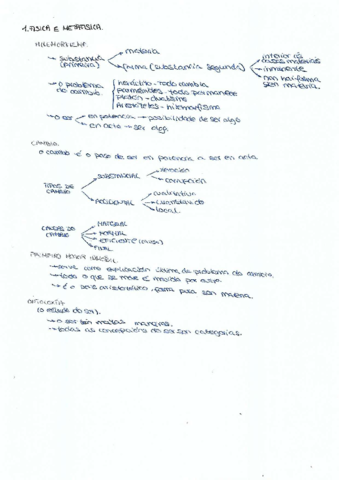 1. FÍSICA E METAFÍSICA.
HILEMORFISMO
materia
→ substancia (primeira)
→ forma (substancia segunda)
interior ás cousas materiais
inmanente
non hai forma sen materia.
→ o problema do cambio
heráclito - todo cambia
Parménides - todo permanece
Platón - dualismo
Aristóteles - hilemorfismo
→ o ser
en potencia → posibilidade de ser algo
en acto → ser algo.
CAMBIO
o cambio é o paso de ser en potencia a ser en acto
TIPOS DE CAMBIO
SUBSTANCIAL
xeración
corrupción
ACCIDENTAL
cualitativo
cuantitativo
local
CAUSAS DO CAMBIO
MATERIAL
FORMAL
EFICIENTE
FINAL
PRIMEIRO MOTOR INMÓBIL
→ serve como explicación última do problema do cambio.
→ todo o que se move é movido por outro.
→ é o deus aristotélico, forma pura sen materia.
ONTOLOXÍA
(o estudo do ser).
→ o ser ten moitas maneiras.
→ todas as concrecións do ser son categorías.